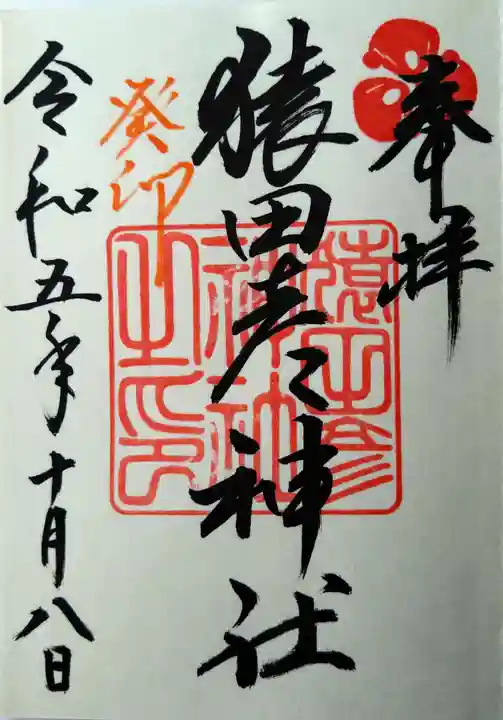 奉拝
猿田彦神社
猿田彦
神社
之印
癸卯
令和五年十月八日